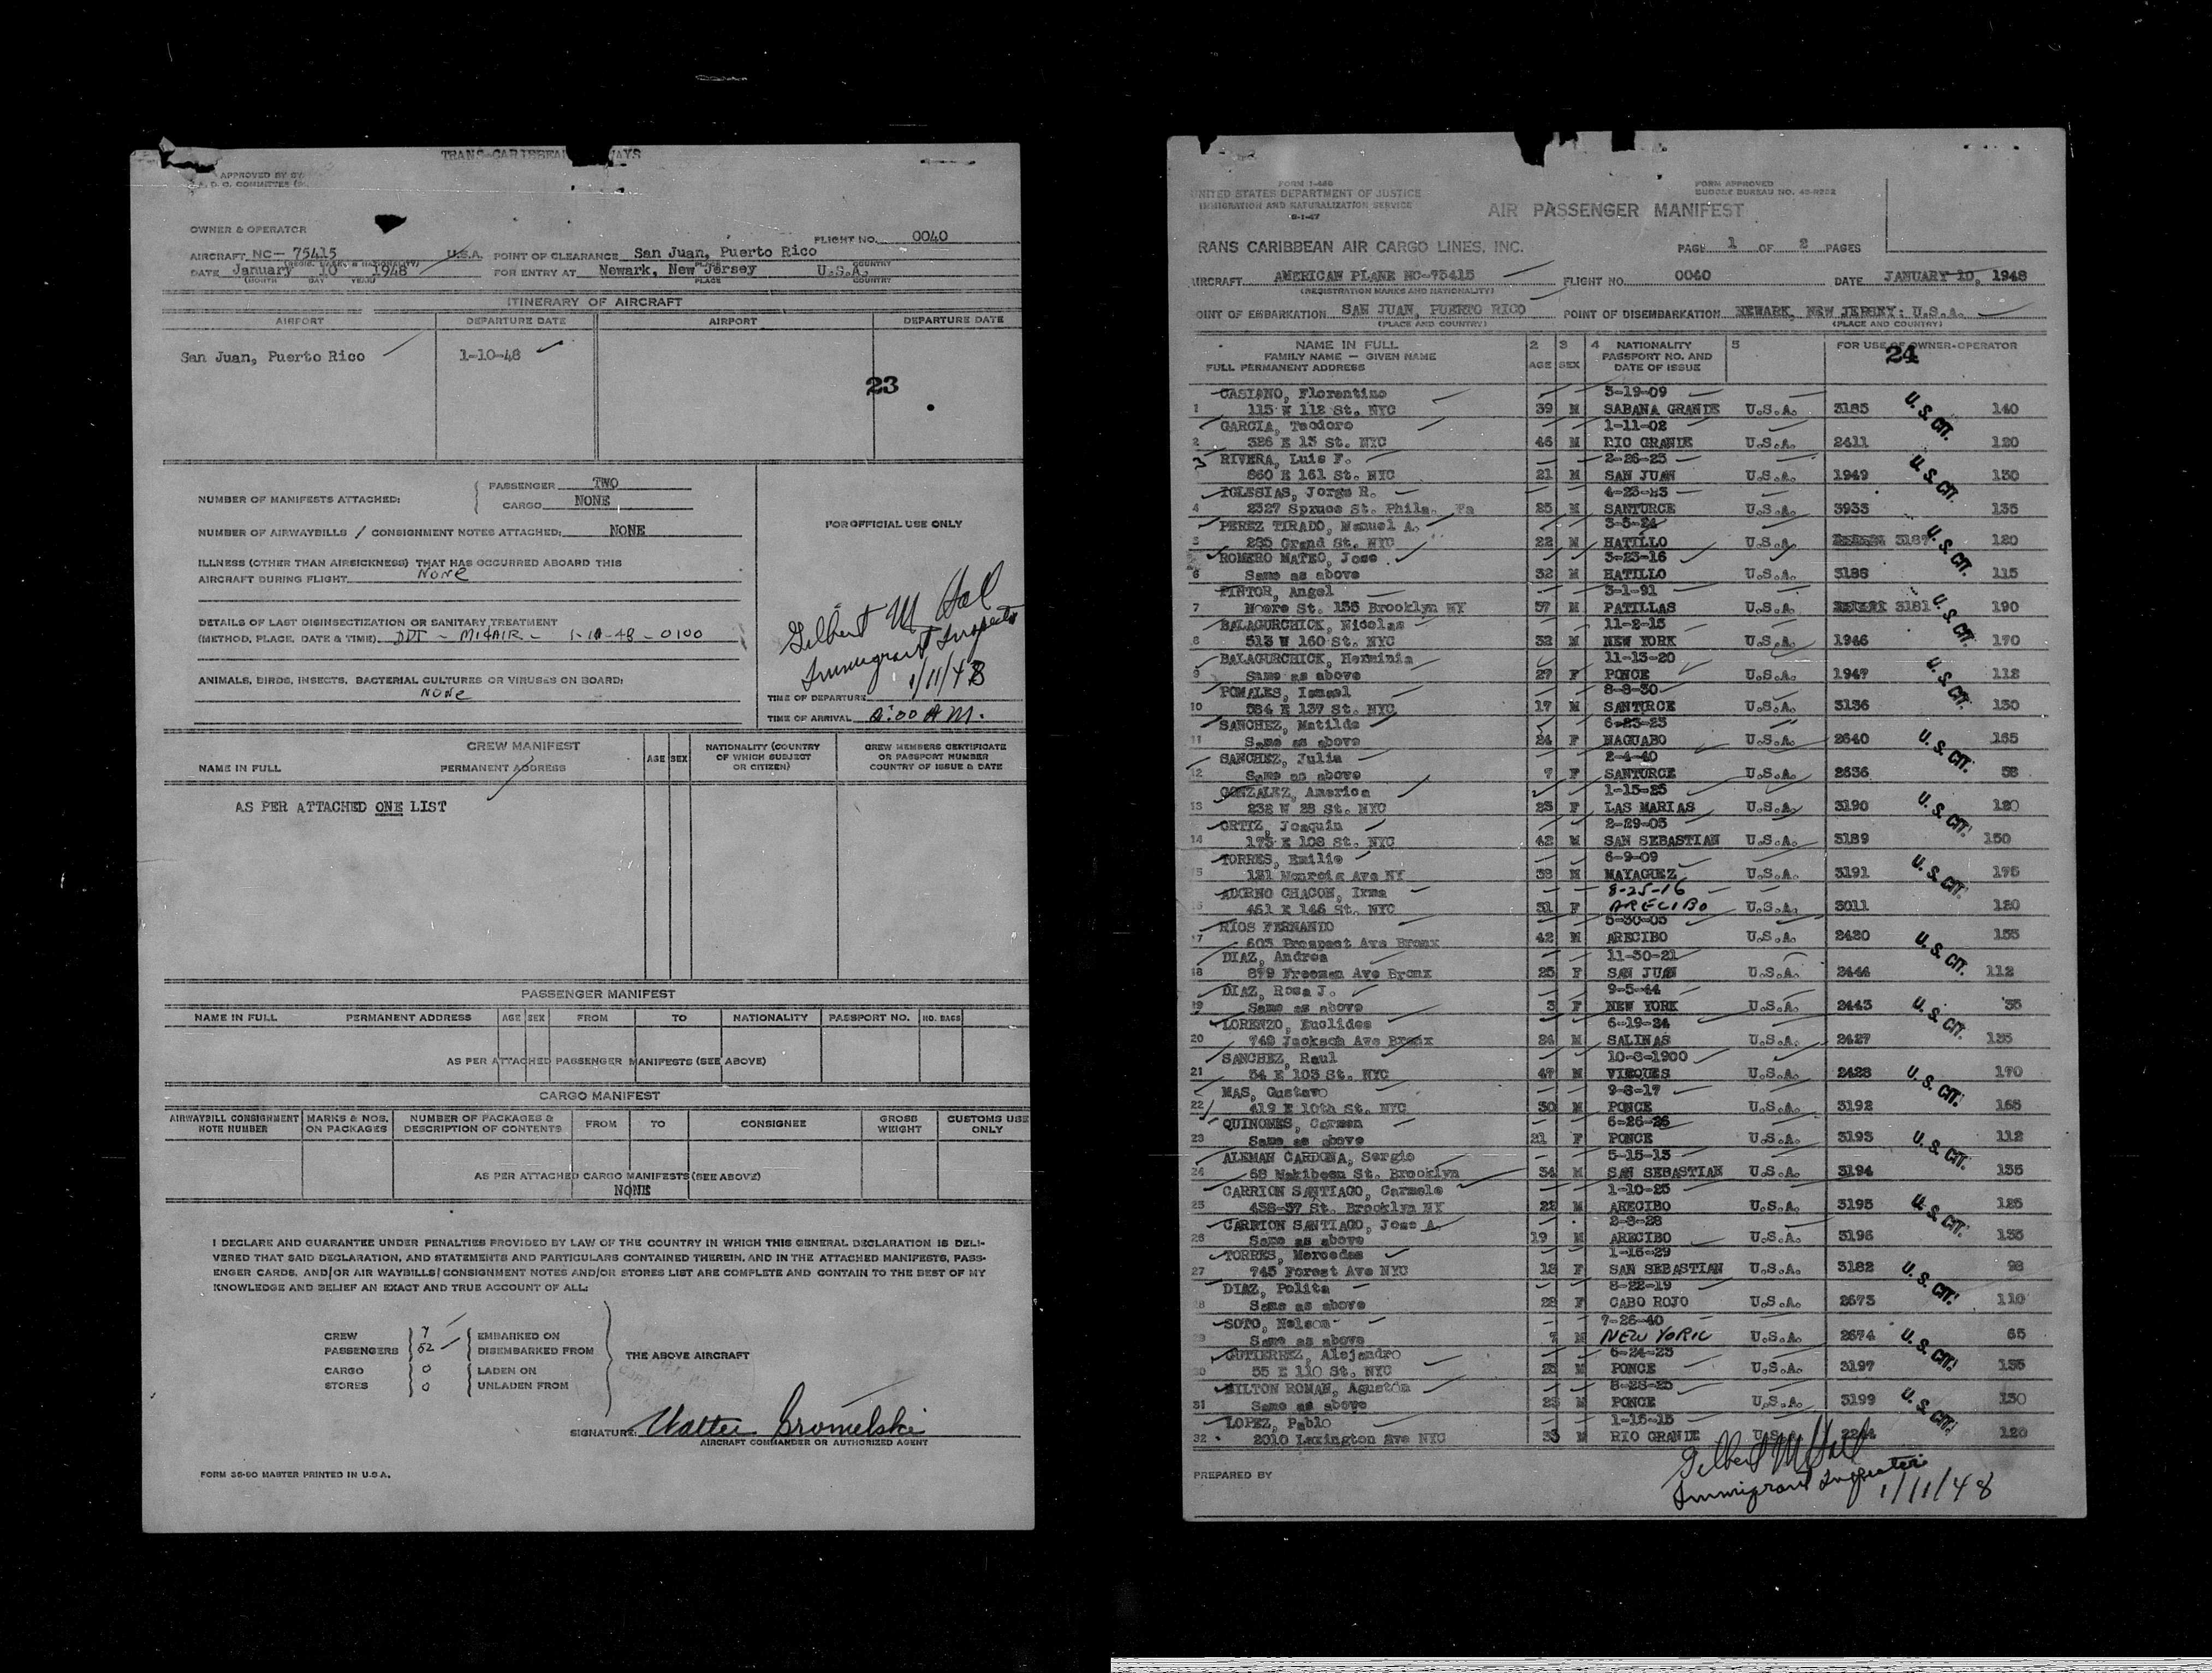 TRANS-CARIBBEAN
APPROVED BY
OWNER & OPERATOR
FLIGHT NO. 0040
AIRCRAFT NC- 75415 U.S.A. POINT OF CLEARANCE San Juan, Puerto Rico
DATE January 10 1948 FOR ENTRY AT Newark, New Jersey U.S.A.
(MONTH DAY YEAR) PLACE COUNTRY
ITINERARY OF AIRCRAFT
AIRPORT DEPARTURE DATE AIRPORT DEPARTURE DATE
San Juan, Puerto Rico 1-10-48
23
NUMBER OF MANIFESTS ATTACHED: PASSENGER TWO
CARGO NONE
NUMBER OF AIRWAYBILLS / CONSIGNMENT NOTES ATTACHED: NONE
FOR OFFICIAL USE ONLY
ILLNESS (OTHER THAN AIRSICKNESS) THAT HAS OCCURRED ABOARD THIS
AIRCRAFT DURING FLIGHT None
DETAILS OF LAST DISINSECTIZATION OR SANITARY TREATMENT
(METHOD, PLACE, DATE & TIME). DDT - MIDAIR - 1-10-48 - 0100
Gilbert M Hal
Immigrant Inspector
1/11/48
ANIMALS, BIRDS, INSECTS, BACTERIAL CULTURES OR VIRUSES ON BOARD:
None
TIME OF DEPARTURE
TIME OF ARRIVAL 2:00 AM.
CREW MANIFEST
NAME IN FULL PERMANENT ADDRESS AGE SEX NATIONALITY (COUNTRY OF WHICH SUBJECT OR CITIZEN) CREW MEMBERS CERTIFICATE OR PASSPORT NUMBER COUNTRY OF ISSUE & DATE
AS PER ATTACHED ONE LIST
PASSENGER MANIFEST
NAME IN FULL PERMANENT ADDRESS AGE SEX FROM TO NATIONALITY PASSPORT NO. NO. BAGS
AS PER ATTACHED PASSENGER MANIFESTS (SEE ABOVE)
CARGO MANIFEST
AIRWAYBILL CONSIGNMENT NOTE NUMBER MARKS & NOS. ON PACKAGES NUMBER OF PACKAGES & DESCRIPTION OF CONTENTS FROM TO CONSIGNEE GROSS WEIGHT CUSTOMS USE ONLY
AS PER ATTACHED CARGO MANIFESTS (SEE ABOVE)
NONE
I DECLARE AND GUARANTEE UNDER PENALTIES PROVIDED BY LAW OF THE COUNTRY IN WHICH THIS GENERAL DECLARATION IS DELI-
VERED THAT SAID DECLARATION, AND STATEMENTS AND PARTICULARS CONTAINED THEREIN, AND IN THE ATTACHED MANIFESTS, PASS-
ENGER CARDS, AND/OR AIR WAYBILLS/CONSIGNMENT NOTES AND/OR STORES LIST ARE COMPLETE AND CONTAIN TO THE BEST OF MY
KNOWLEDGE AND BELIEF AN EXACT AND TRUE ACCOUNT OF ALL:
CREW 7 EMBARKED ON
PASSENGERS 52 DISEMBARKED FROM
THE ABOVE AIRCRAFT
CARGO 0 LADEN ON
STORES 0 UNLADEN FROM
SIGNATURE: Walter Gromelski
AIRCRAFT COMMANDER OR AUTHORIZED AGENT
FORM 36-90 MASTER PRINTED IN U.S.A.
FORM I-466 FORM APPROVED
UNITED STATES DEPARTMENT OF JUSTICE BUDGET BUREAU NO. 43-R232
IMMIGRATION AND NATURALIZATION SERVICE
AIR PASSENGER MANIFEST
RANS CARIBBEAN AIR CARGO LINES, INC. PAGE 1 OF 2 PAGES
AIRCRAFT AMERICAN PLANE NC-75415 FLIGHT NO. 0040 DATE JANUARY 10, 1948
(REGISTRATION MARKS AND NATIONALITY)
OINT OF EMBARKATION SAN JUAN, PUERTO RICO POINT OF DISEMBARKATION NEWARK, NEW JERSEY: U.S.A.
(PLACE AND COUNTRY) (PLACE AND COUNTRY)
NAME IN FULL 2 3 4 NATIONALITY 5 FOR USE OF OWNER-OPERATOR
FAMILY NAME — GIVEN NAME PASSPORT NO. AND 24
FULL PERMANENT ADDRESS AGE SEX DATE OF ISSUE
CASIANO, Florentino 3-19-09
1 115 W 112 St. NYC 39 M SABANA GRANDE U.S.A. 3185 U.S. CIT. 140
GARCIA, Teodoro 1-11-02
2 326 E 13 St. NYC 46 M RIO GRANDE U.S.A. 2411 120
RIVERA, Luis F. 2-26-23
3 860 E 161 St. NYC 21 M SAN JUAN U.S.A. 1949 U.S. CIT. 130
IGLESIAS, Jorge R.
4 2327 Spruce St. Phila. Pa 25 M SANTURCE U.S.A. 3933 135
PEREZ TIRADO, Manuel A. 3-5-24
5 285 Grand St. NYC 22 M HATILLO U.S.A. 3187 U.S. CIT. 120
ROMERO MATEO, Jose 3-23-16
6 Same as above 32 M HATILLO U.S.A. 3188 115
PINTOR, Angel 3-1-91
7 Moore St. 136 Brooklyn NY 57 M PATILLAS U.S.A. 3181 U.S. CIT. 190
BALAGURCHICK, Nicolas 11-2-15
8 513 W 160 St. NYC 32 M NEW YORK U.S.A. 1946 170
BALAGURCHICK, Herminia 11-13-20
9 Same as above 27 F PONCE U.S.A. 1947 U.S. CIT. 112
POMALES, Ismael 8-8-30
10 584 E 137 St. NYC 17 M SANTURCE U.S.A. 3136 130
SANCHEZ, Matilde 6-23-23
11 Same as above 24 F NAGUABO U.S.A. 2640 U.S. CIT. 165
SANCHEZ, Julia 2-4-40
12 Same as above 7 F SANTURCE U.S.A. 2636 58
GONZALEZ, America 1-15-25
13 232 W 28 St. NYC 23 F LAS MARIAS U.S.A. 3190 U.S. CIT. 120
ORTIZ, Joaquin 2-29-05
14 173 E 108 St. NYC 42 M SAN SEBASTIAN U.S.A. 3189 150
TORRES, Emilio 6-9-09
15 Ave NY 38 M MAYAGUEZ U.S.A. 3191 U.S. CIT. 175
ADORNO CHACON, Irma 8-25-16
16 461 E 146 St. NYC 31 F ARECIBO U.S.A. 3011 120
RIOS FERNANDO 5-30-05
17 603 Prospect Ave Bronx 42 M ARECIBO U.S.A. 2420 U.S. CIT. 155
DIAZ, Andrea 11-30-21
18 879 Freeman Ave Bronx 25 F SAN JUAN U.S.A. 2444 112
DIAZ, Rosa J. 9-5-44
19 Same as above 3 F NEW YORK U.S.A. 2443 U.S. CIT. 35
LORENZO, Euclides 6-19-24
20 749 Jackson Ave Bronx 24 M SALINAS U.S.A. 2427 135
SANCHEZ, Raul 10-8-1900
21 54 E 103 St. NYC 47 M VIEQUES U.S.A. 2428 U.S. CIT. 170
MAS, Gustavo 9-8-17
22 419 E 10th St. NYC 30 M PONCE U.S.A. 3192 165
QUINONES, Carmen 6-26-26
23 Same as above 21 F PONCE U.S.A. 3193 U.S. CIT. 112
ALEMAN CARDONA, Sergio 5-15-13
24 68 Makibeen St. Brooklyn 34 M SAN SEBASTIAN U.S.A. 3194 135
CARRION SANTIAGO, Carmelo 1-10-25
25 438-57 St. Brooklyn NY 22 M ARECIBO U.S.A. 3195 U.S. CIT. 125
CARRION SANTIAGO, Jose A. 2-8-28
26 Same as above 19 M ARECIBO U.S.A. 3196 135
TORRES, Mercedes 1-16-29
27 745 Forest Ave NYC 18 F SAN SEBASTIAN U.S.A. 3182 U.S. CIT. 98
DIAZ, Polita 8-22-19
28 Same as above 28 F CABO ROJO U.S.A. 2673 110
SOTO, Nelson 7-26-40
29 Same as above 7 M NEW YORK U.S.A. 2674 U.S. CIT. 65
GUTIERREZ, Alejandro 6-24-23
30 55 E 110 St. NYC 23 M PONCE U.S.A. 3197 135
HILTON ROMAN, Agustin 8-28-25
31 Same as above 23 M PONCE U.S.A. 3199 U.S. CIT. 130
LOPEZ, Pablo 1-15-15
32 2010 Lexington Ave NYC 33 M RIO GRANDE U.S.A. 2244 120
Gilbert M Hal
PREPARED BY Immigrant Inspector
1/11/48